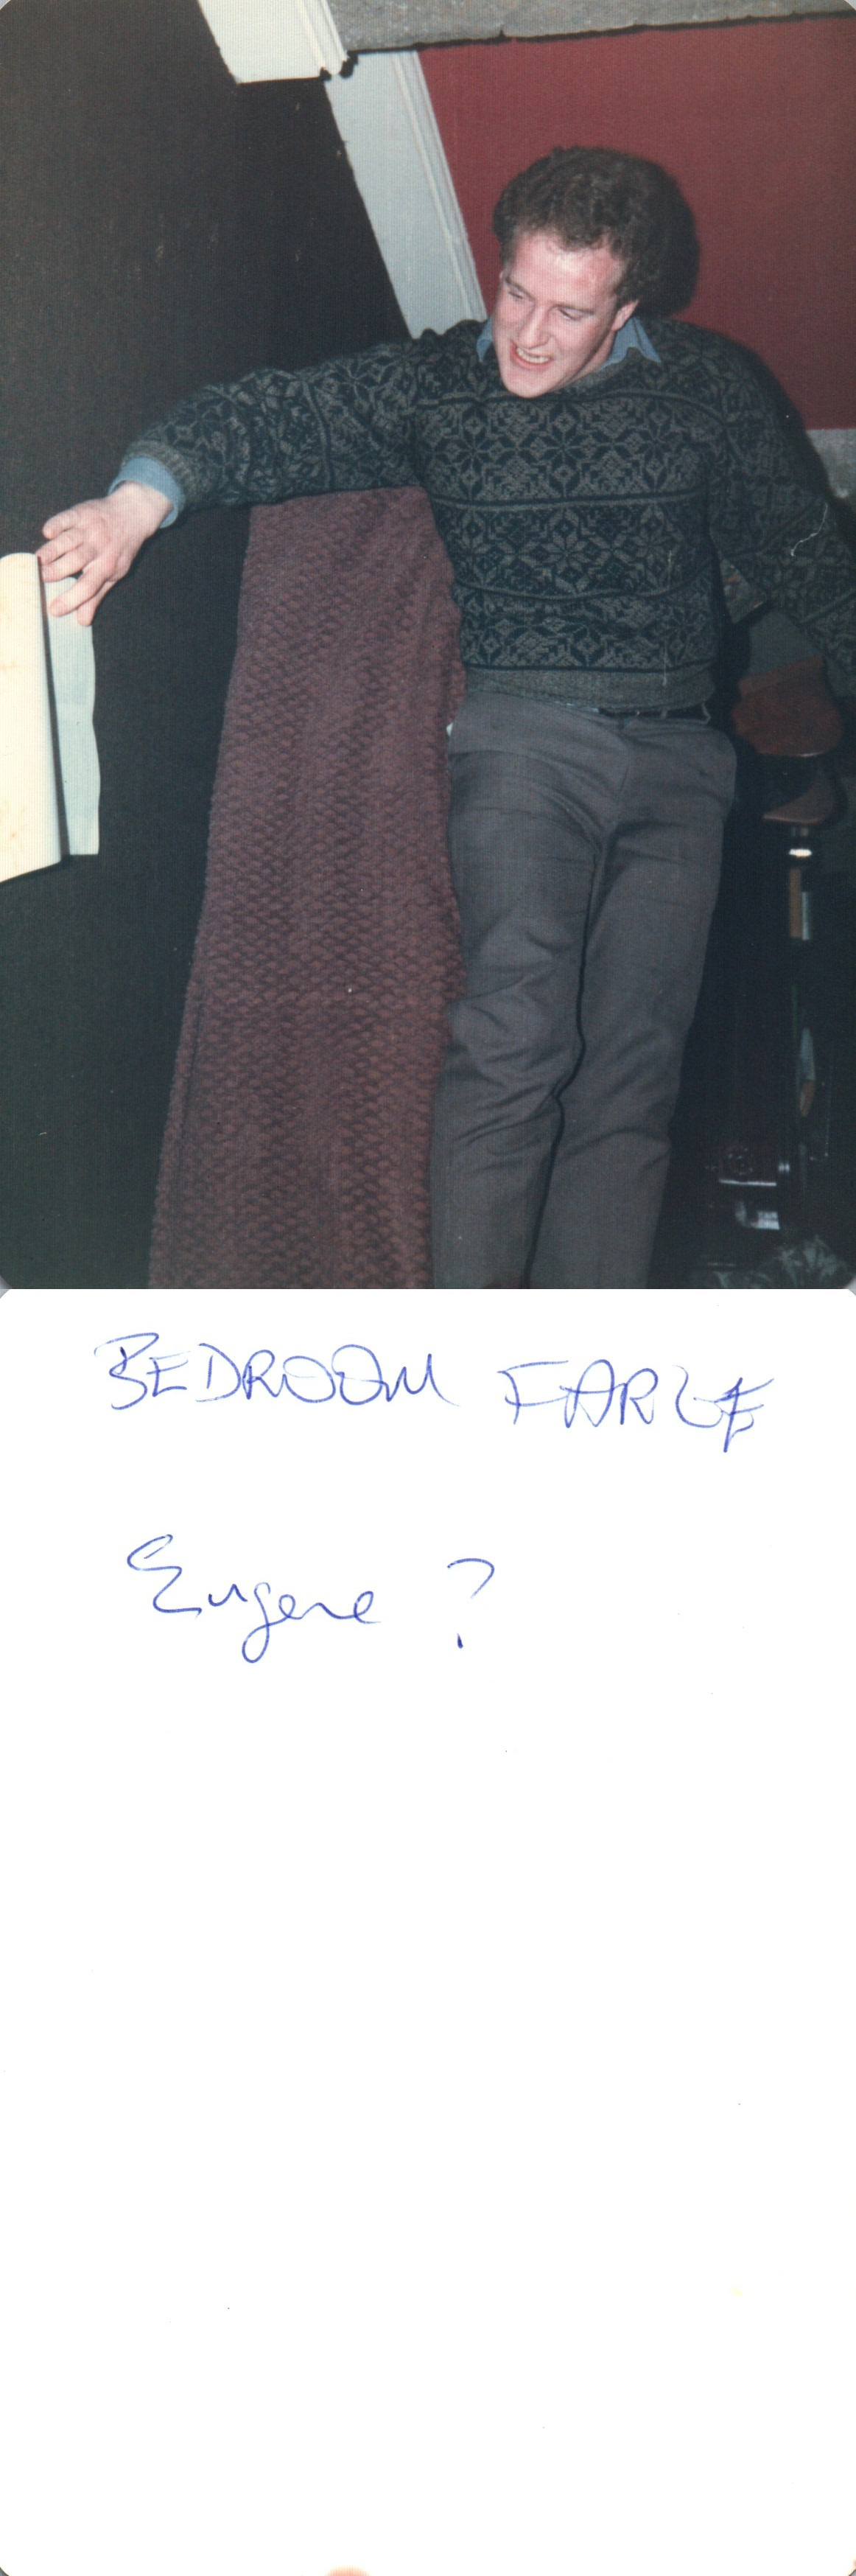 BEDROOM FARCE
Eugene ?